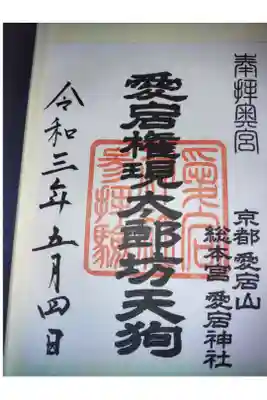 奉拝奥宮
京都 愛宕山
総本宮 愛宕神社
愛宕権現太郎坊天狗
令和三年五月四日